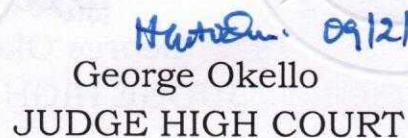 09/2/
George Okello
JUDGE HIGH COURT